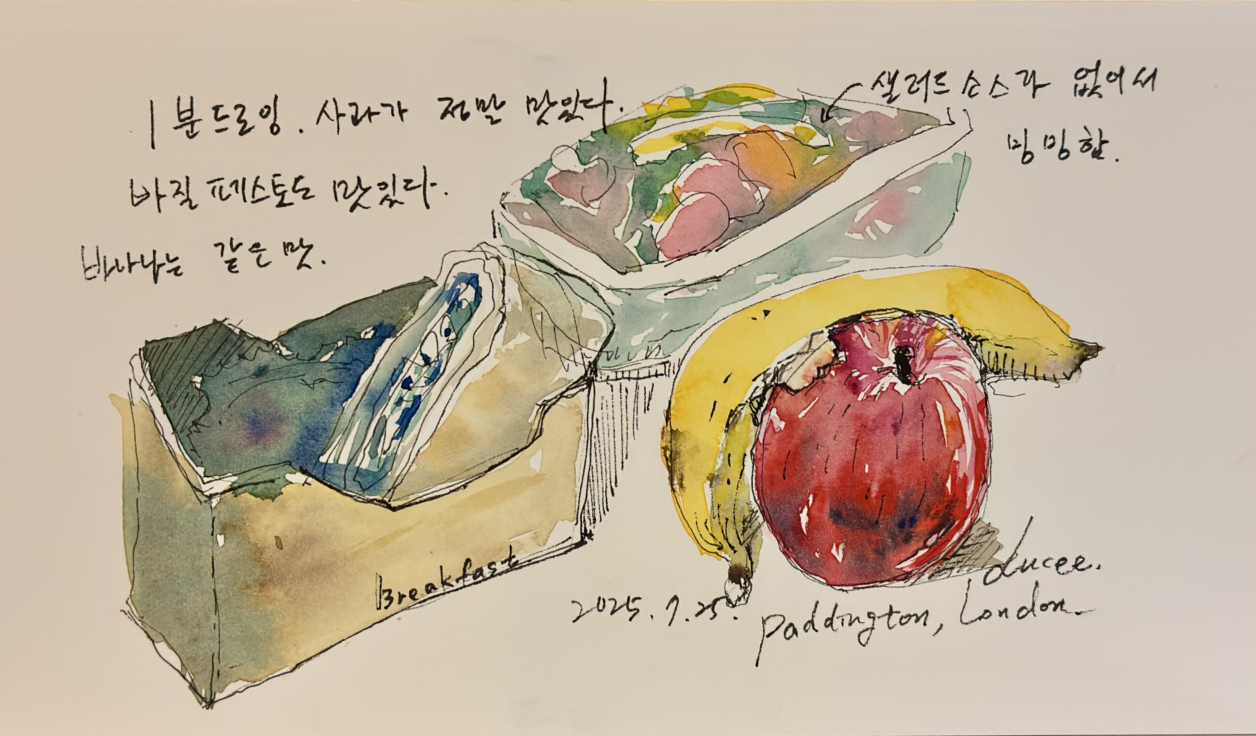 1분드로잉. 사과가 정말 맛있다.
바질 페스토도 맛있다.
바나나는 같은 맛.
샐러드 소스가 없어서
밍밍함.
Breakfast
2025.7.25.
Lucee.
Paddington, London.